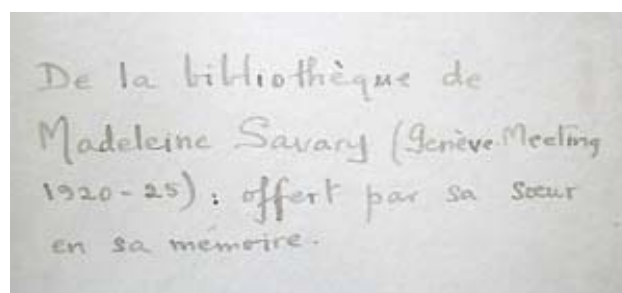 De la bibliothèque de
Madeleine Savary (Genève Meeting
1920-25) : offert par sa sœur
en sa mémoire.